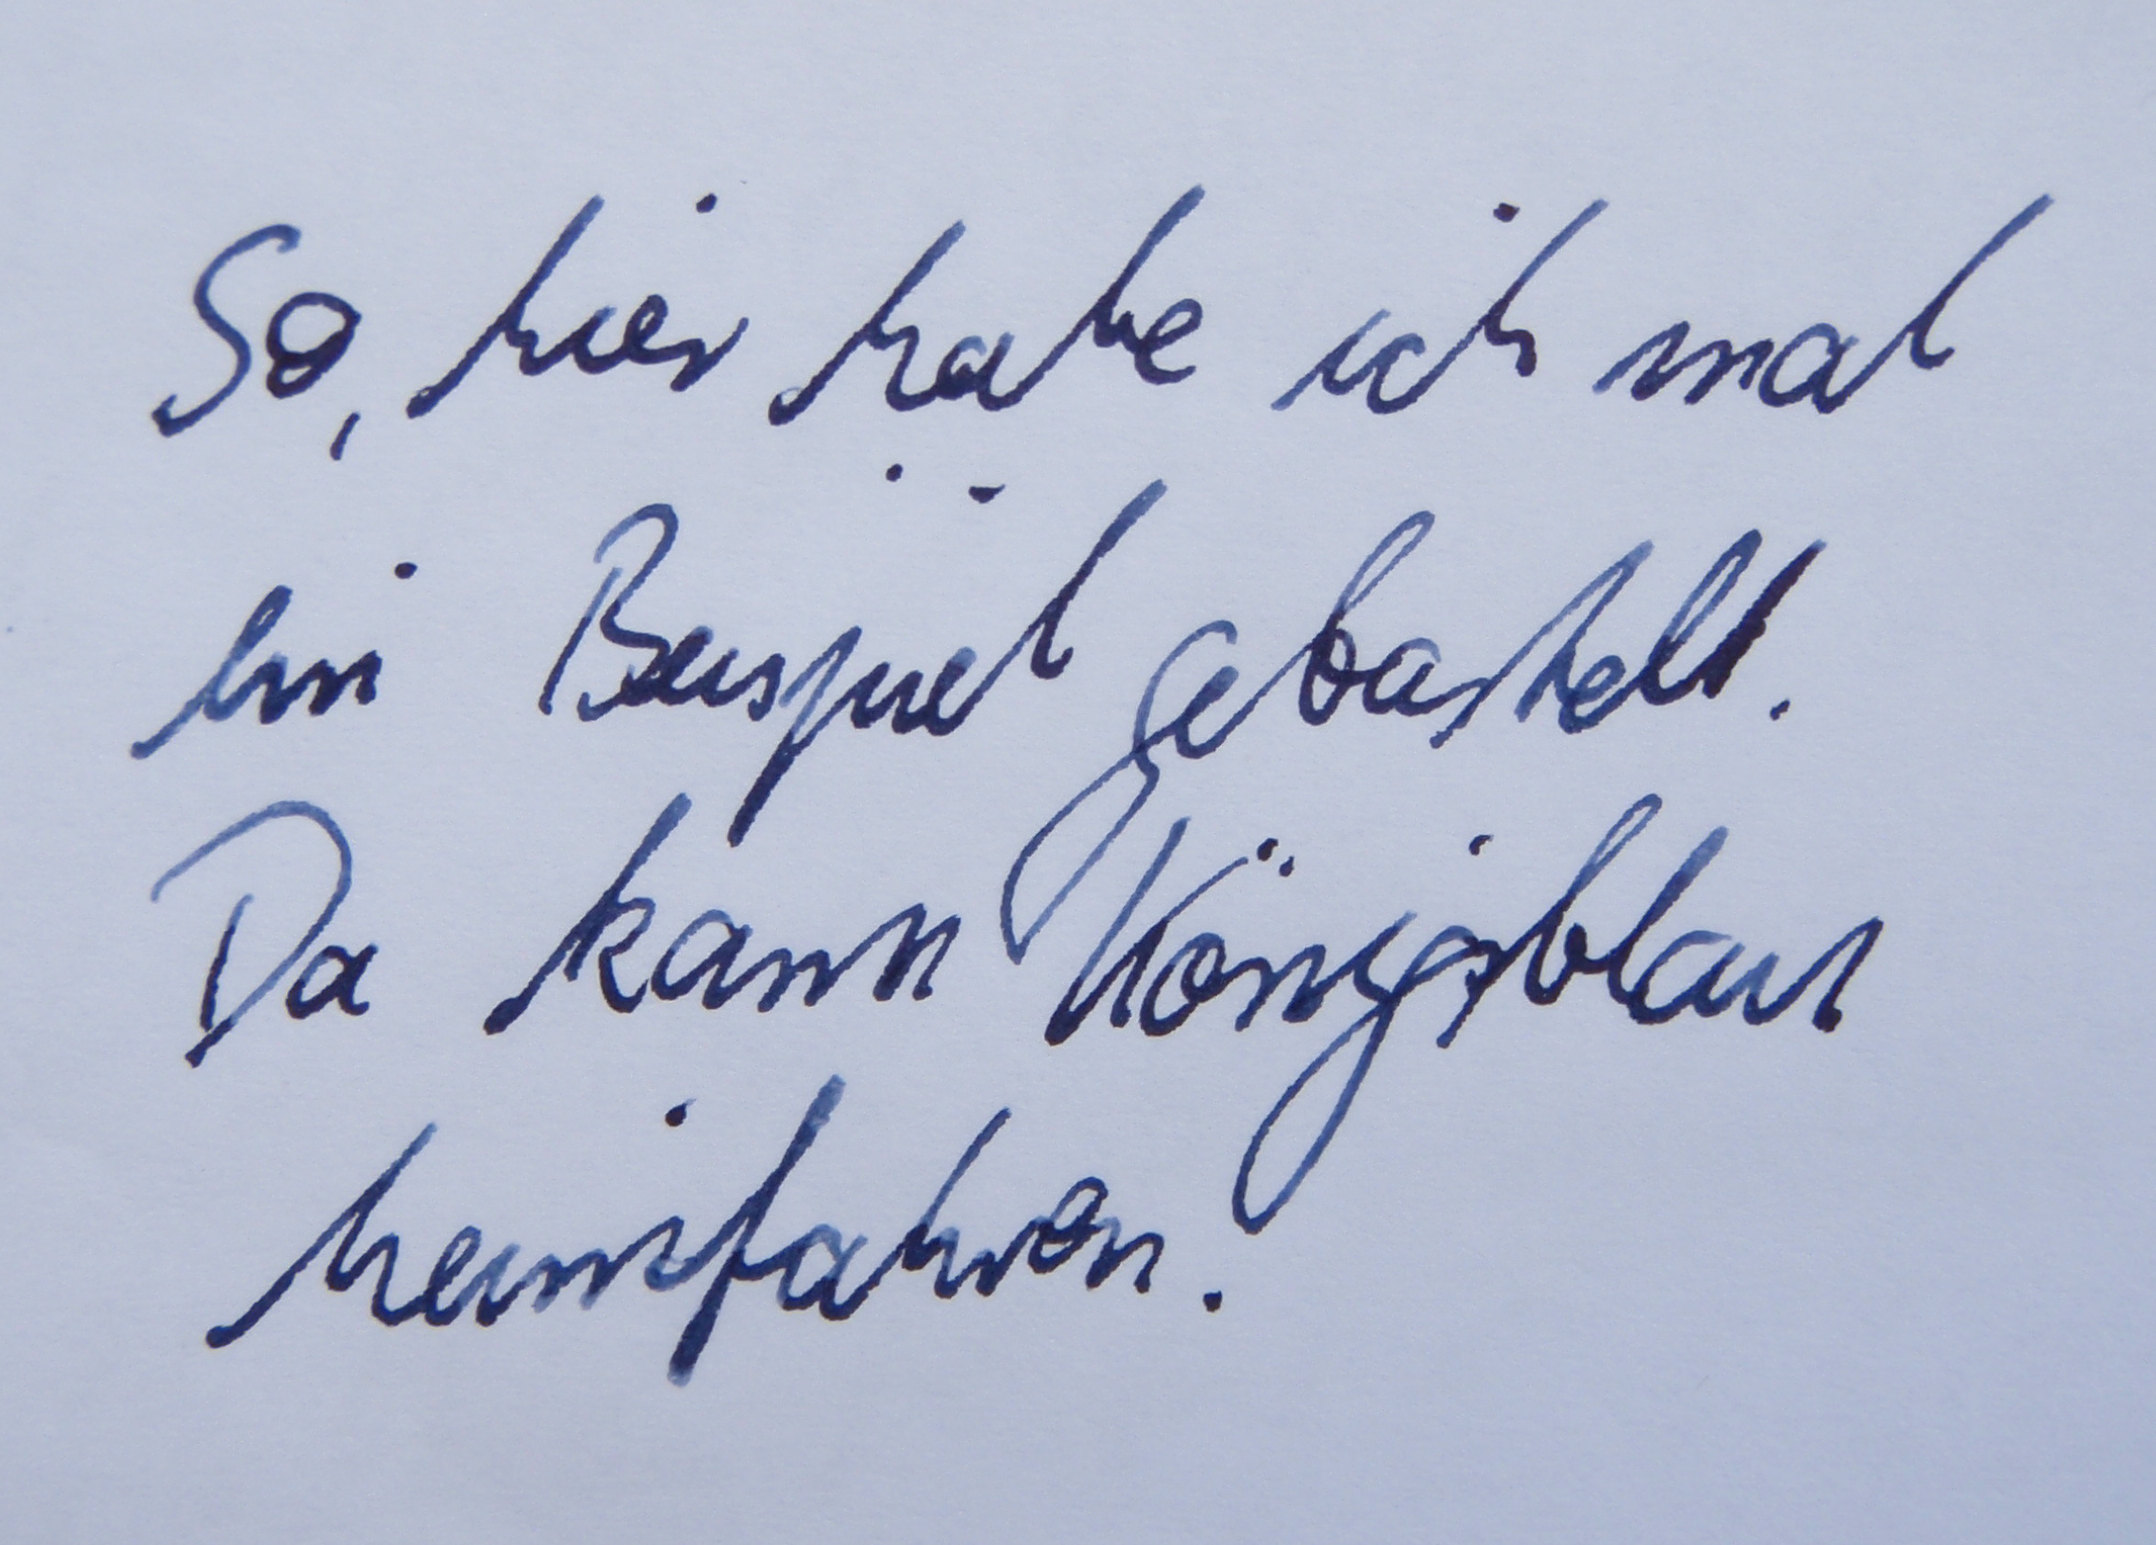 So, hier habe ich mal
ein Beispiel gebastelt.
Da kann Königsblau
heimfahren.